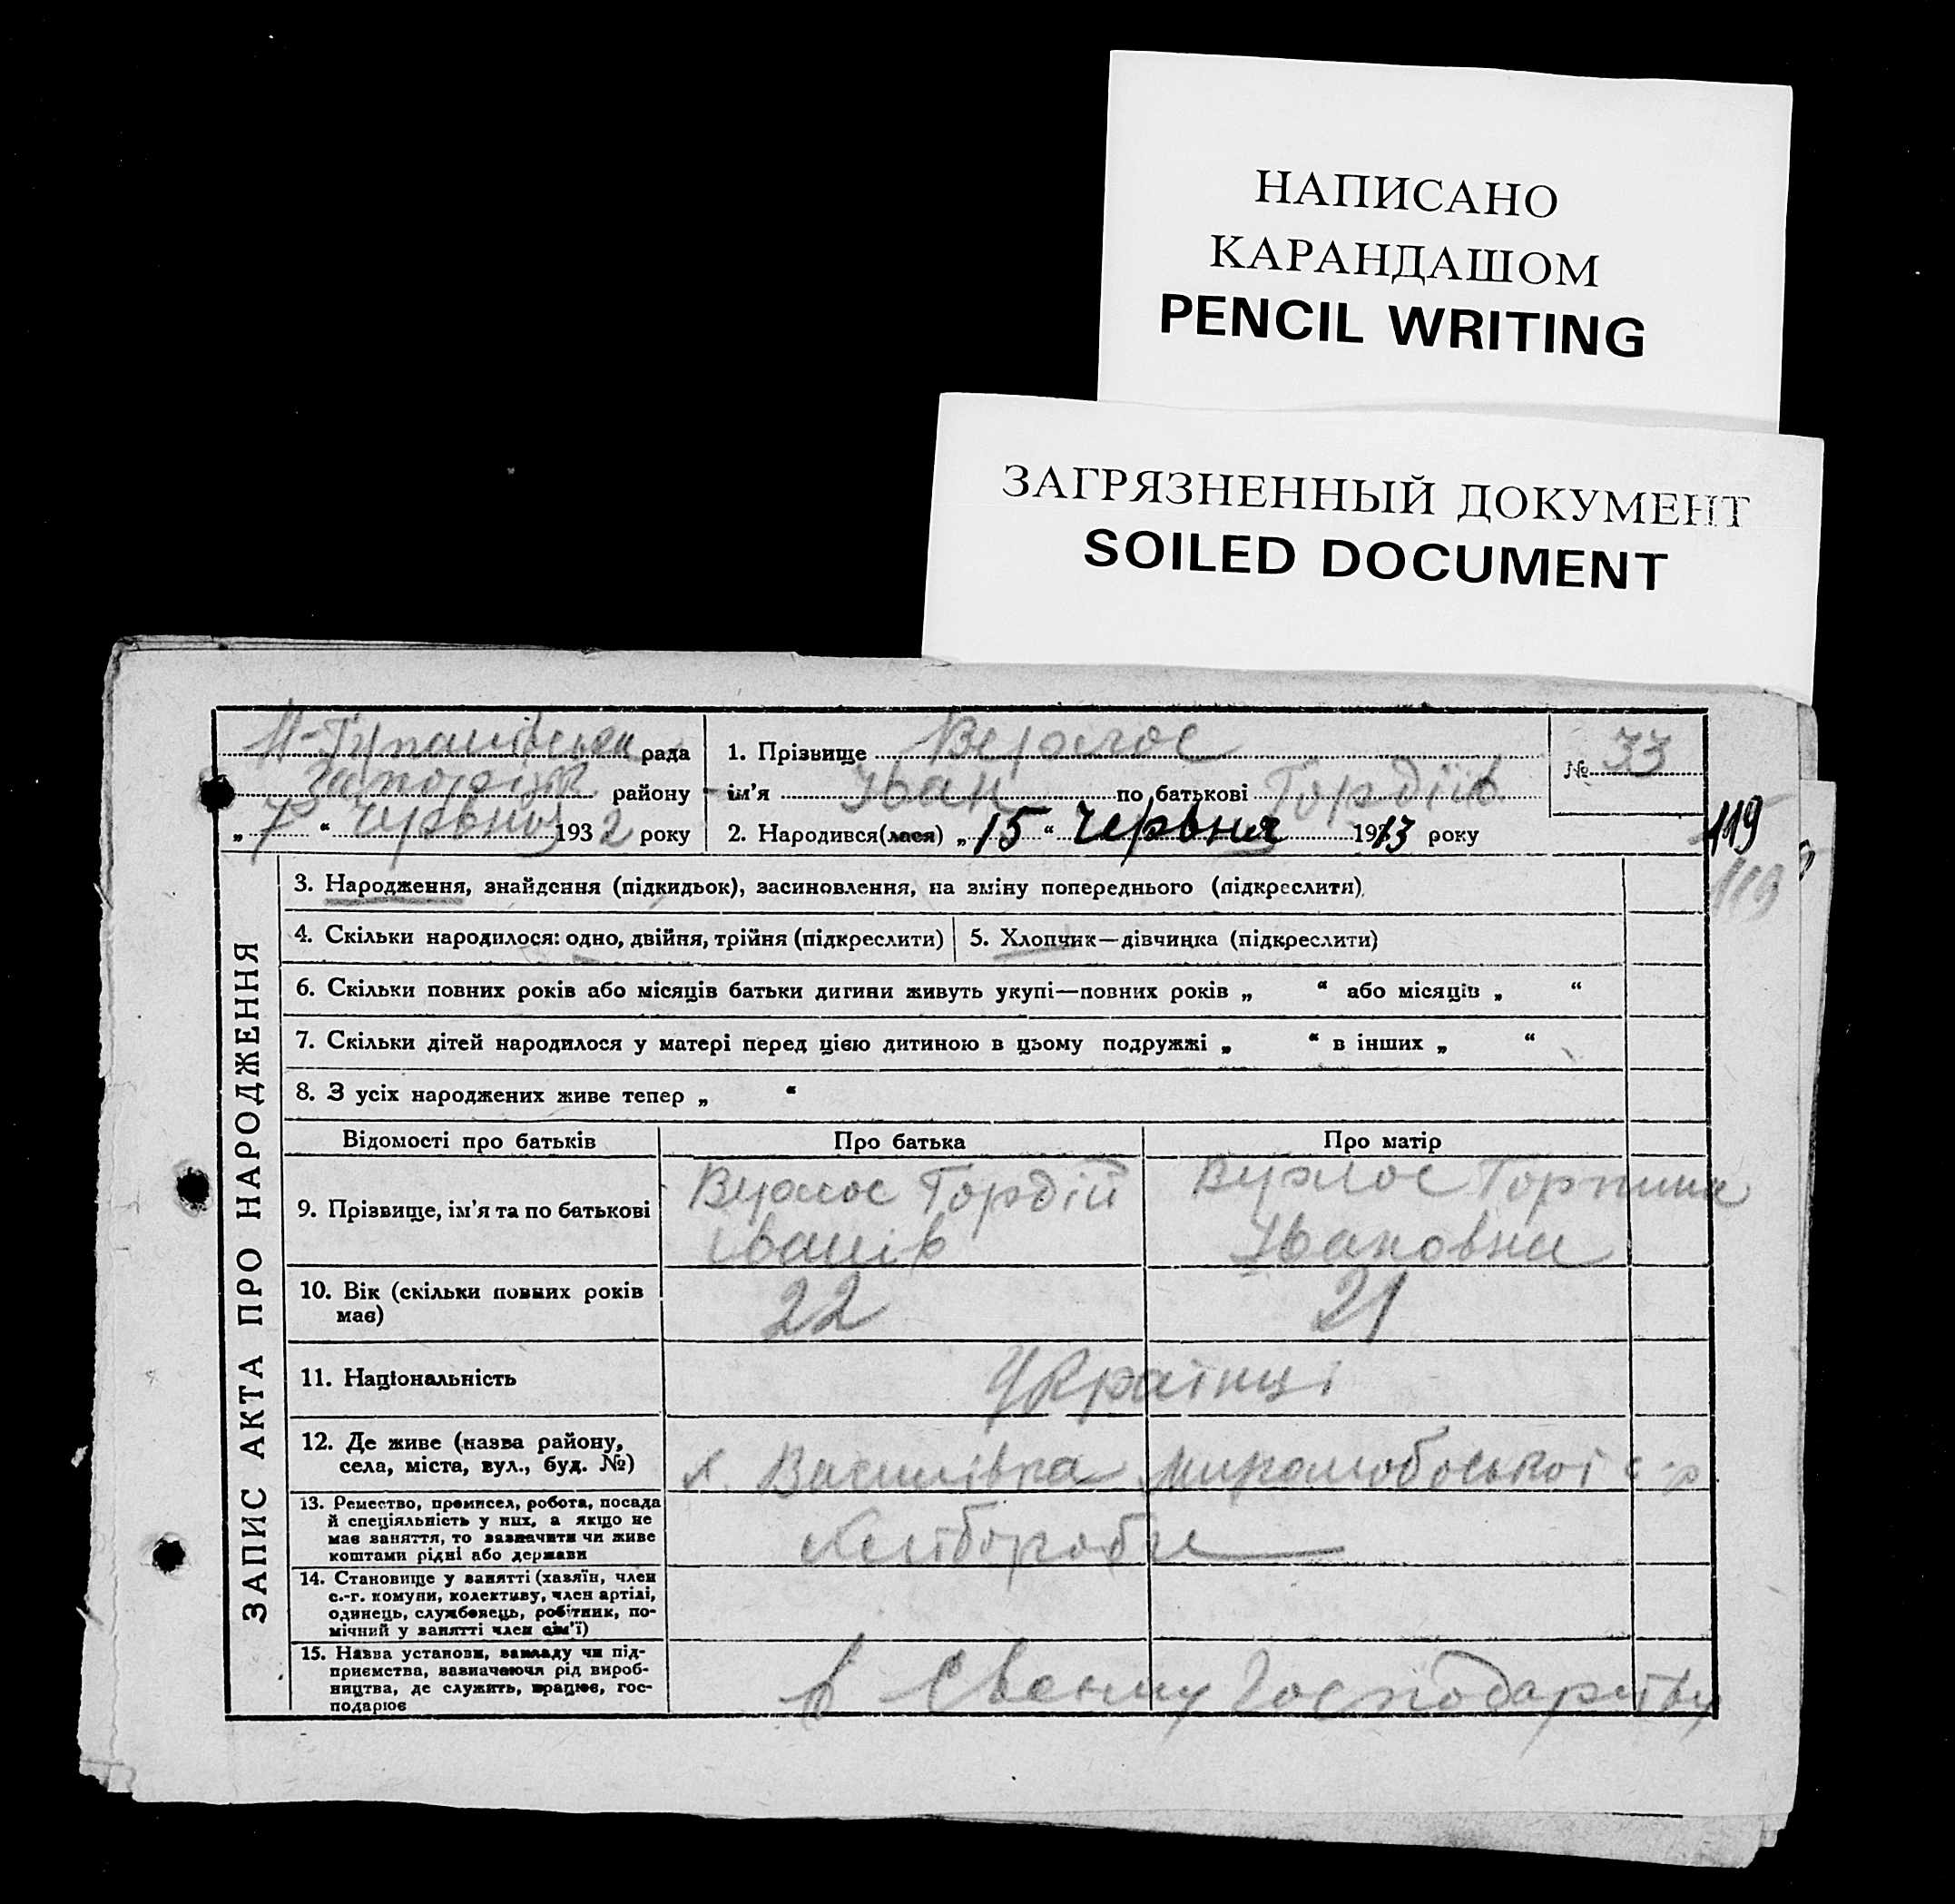 НАПИСАНО
КАРАНДАШОМ
PENCIL WRITING
ЗАГРЯЗНЕННЫЙ ДОКУМЕНТ
SOILED DOCUMENT
рада
району
„ 7 “ Червня 1932 року
1. Прізвище
ім’я Іван по батькові Гордіїв
2. Народився(лася) „ 15 “ Червня 1913 року
№ 33
119
119
ЗАПИС АКТА ПРО НАРОДЖЕННЯ
3. Народження, знайдення (підкидьок), засиновлення, на зміну попереднього (підкреслити)
4. Скільки народилося: одно, двійня, трійня (підкреслити)
5. Хлопчик—дівчинка (підкреслити)
6. Скільки повних років або місяців батьки дитини живуть укупі—повних років „ “ або місяців „ “
7. Скільки дітей народилося у матері перед цією дитиною в цьому подружжі „ “ в інших „ “
8. З усіх народжених живе тепер „ “
Відомості про батьків
Про батька
Про матір
9. Прізвище, ім’я та по батькові
Гордій
Іванів
Горпина
Івановна
10. Вік (скільки повних років
має)
22
21
11. Національність
Українці
12. Де живе (назва району,
села, міста, вул., буд. №)
х. Василівка с-р
13. Ремество, промисел, робота, посада
й спеціяльність у них, а якщо не
має заняття, то зазначити чи живе
коштами рідні або держави
Хлібороби
14. Становище у занятті (хазяїн, член
с.-г. комуни, колективу, член артілі,
одинець, службовець, робітник, по-
мічний у занятті член сім’ї)
15. Назва установи, закладу чи під-
приємства, зазначаючи рід вироб-
ництва, де служить, працює, гос-
подарює
в своєму господарству